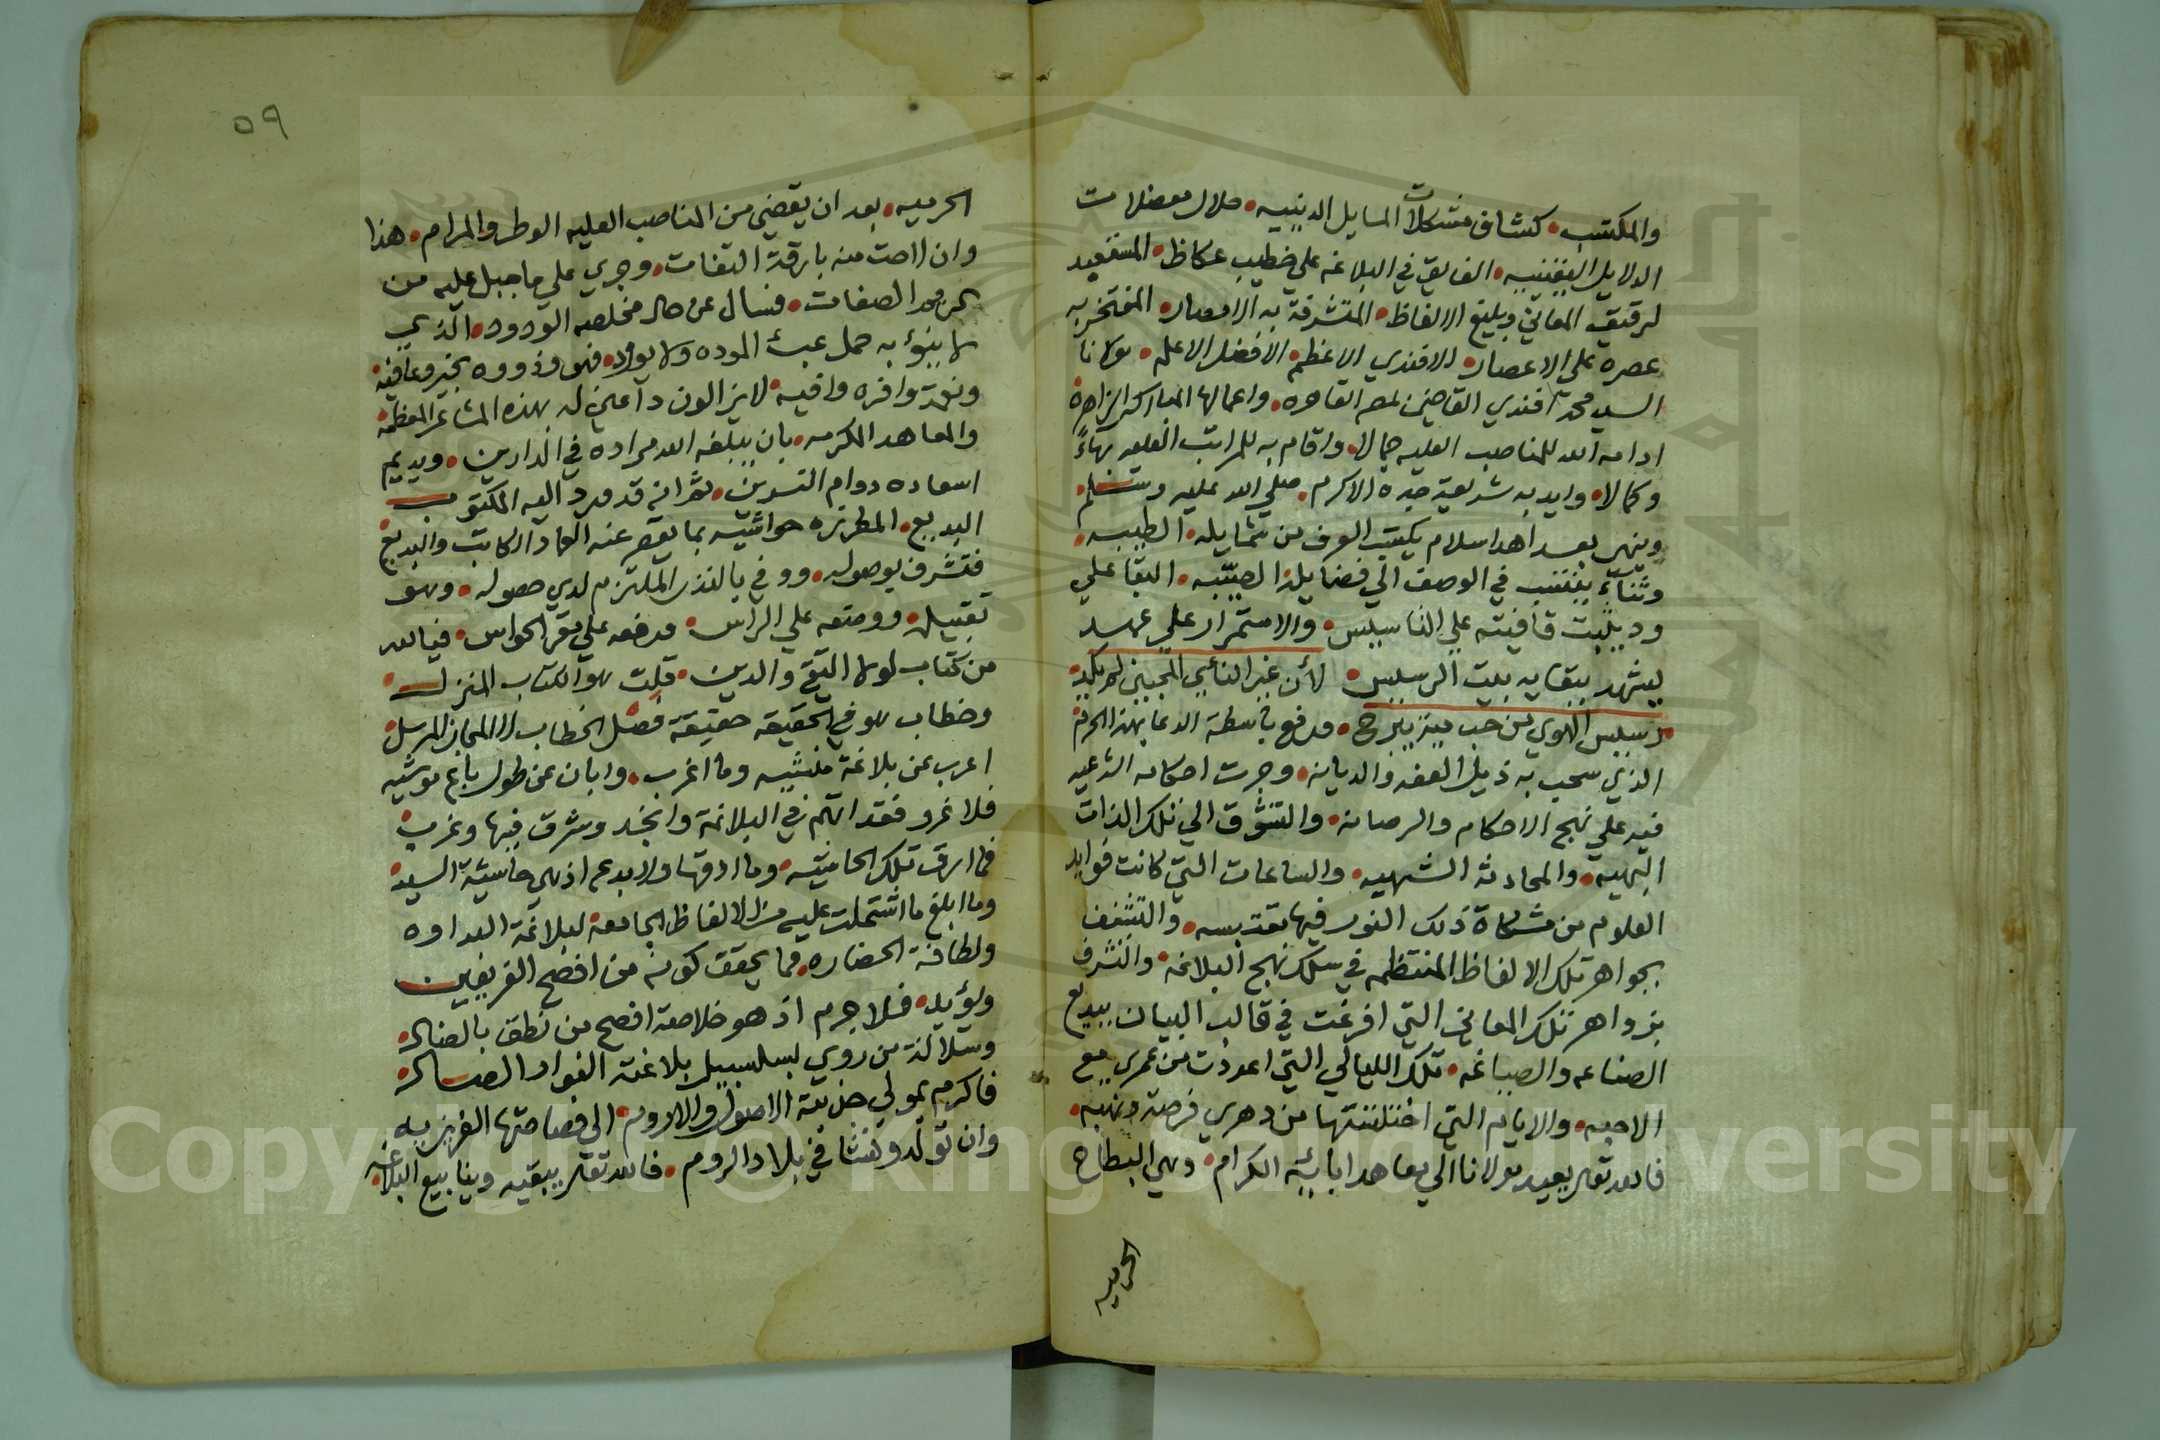 والمكتسب كشاف مشكلات المسايل الدينيه حلال معضلات
الدلايل اليقينيه الفايق في البلاغه علي خطيب عكاظ المستعبد
لرقيق المعاني وبليغ الالفاظ المتشرفة به الامصار المفتخر به
عصره علي الاعصار الافندي الاعظم الافضل الاعلم مولانا
السيد محمد افندي القاضي بمصر القاهره واعمالها المباركه الزاهرة
ادامه الله للمناصب العليه جمالا واقام به للمراتب العليه بهاءً
وكمالا وايد به شريعة جده الاكرم صلي الله عليه وسلم
وينهي بعد اهدا سلام يكتسب العرف من شمايله الطيبه
وثناءٍ ينتسب في الوصف الي فضايله الصيّبه البقا علي
ود يثبت قافيته علي التاسيس والاستمرار علي عهد
يشهد ببقايه بيت الرسيس لأن غير الناي المحبين لم يكد
رسيس الهوي من حب مية يبرح ورفع باسطة الدعا بهذا الحرم
الذي سحب به ذيل العفه والديانه وجرت احكامه الشرعيه
فيه علي نهج الاحكام والرصانه والتشوق الي تلك الذات
البهيه والمحادثه الشهيه والساعات التي كانت فوايد
العلوم من مشكاة ذلك النور فيها مقتبسه والتشنف
بجواهر تلك الالفاظ المنتظمه في سلك نهج البلاغه والتشرف
بزواهر تلك المعاني التي افرغت في قالب البيان ببديع
الصناعه والصياغه تلك الليالي التي اعددت من عمري مع
الاحبه والايام التي اختلستها من دهري فرصة ونهبه
فالله تعالي يعيد مولانا الي معاهد ابائه الكرام وهي البطاح
الحرميه
الحرميه بعد ان يقضي من المناصب العليه الوطر والمرام هذا
وان لاحت منه بارقة التفات وجري علي ما جبل عليه من
محمد الصفات فسال عن حال مخلصه الودود الذي
لا ينوء به حمل عبئ الموده ولا يوود فهو وذووه بخير وعافيه
ونعمة وافره وافيه لايزالون داعين له بهذه المشاعر المعظمه
والمعاهد المكرمه بان يبلغه الله مراده في الدارين ويديم
اسعاده دوام النسرين ثم انه قد ورد اليه المكتوب
البديع المطرزه حواشيه بما يقصر عنه العماد الكاتب والبديع
فتشرف بوصوله ووفي بالنذر الملتزم لدي حصوله وهو
تقبيله ووضعه علي الراس ورفعه علي مقر الحواس فيالله
من كتاب لولا التقي والدين قلت هو الكتاب المنزل
وخطاب هو في الحقيقه حقيقة فصل الخطاب لا المجاز المرسل
اعرب عن بلاغة منشيه وما اغرب وابان عن طول باع موشيه
فلا غرو فقد اتهم في البلاغة وانجد وشرق فيها وغرب
فما ارق تلك الحاشيه وما ادقها ولا بدع اذ هي حاشية السيد
وما ابلغ ما اشتملت عليه من الالفاظ الجامعه لبلاغة البداوه
ولطافة الحضاره مما يحقق كونه من افصح الفريقين
ويؤيد فلا جرم اذ هو خلاصة افصح من نطق بالضاد
وسلالة من روي بسلسبيل بلاغته الفواد الصاد
فاكرم بمولي جذبته الاصول والاروم الي فصاحتها الغريزيه
وان تولد ونشا في بلاد الروم فالله تعالي يبقيه وينابيع البلاغه
٥٩
Copyright © King Saud University